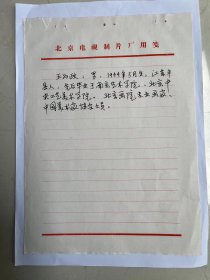 北京电视制片厂用笺
男，1944年3月生，江苏
人，先后毕业于南京艺术学院、北京中
央工艺美术学院。北京画院专业画家，
中国美术家协会会员。